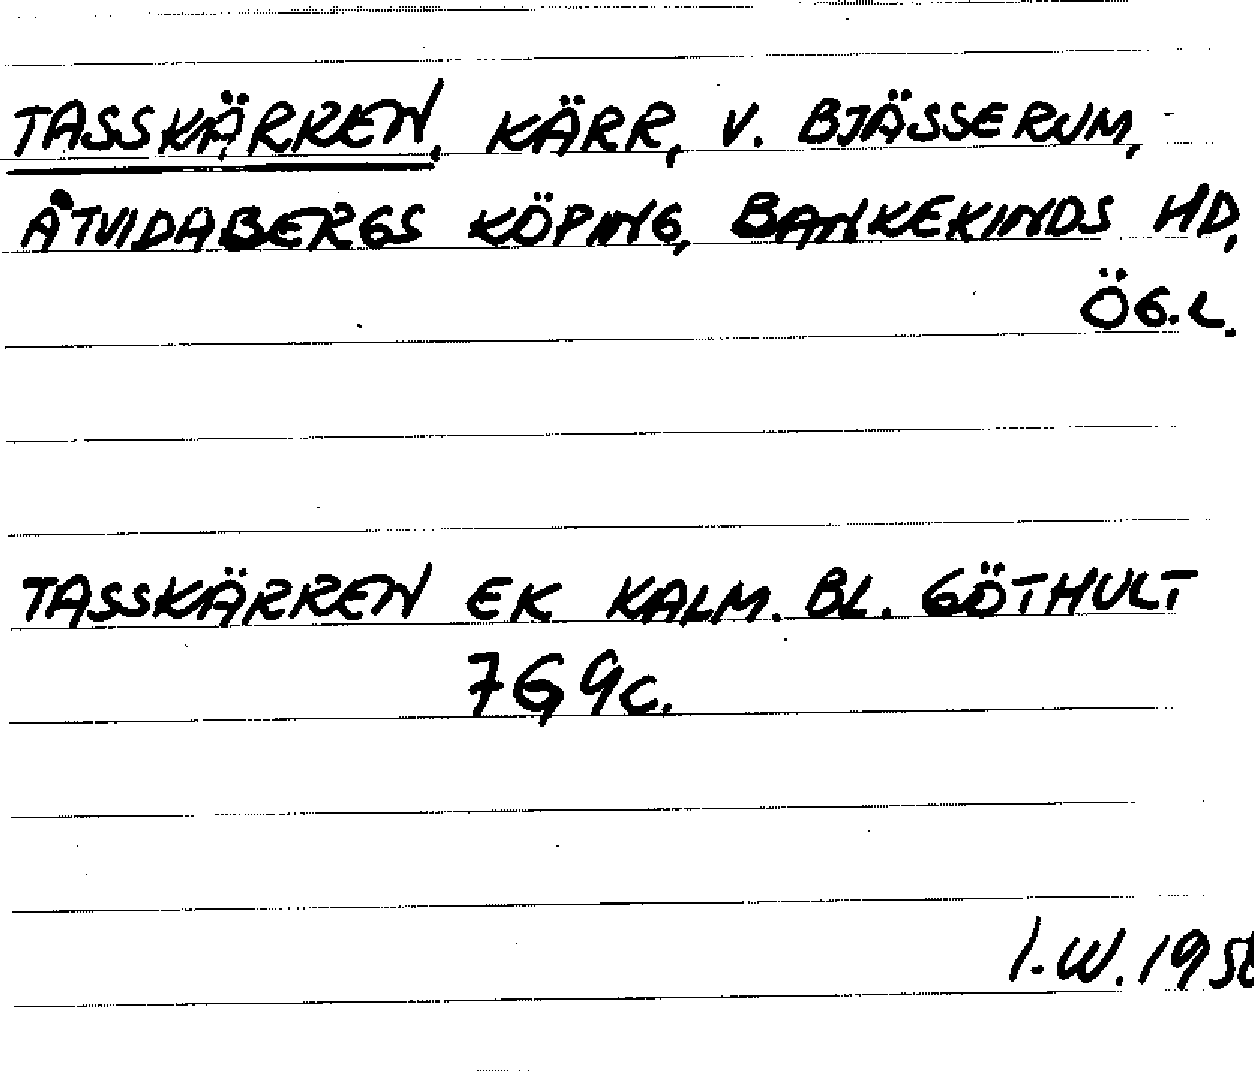 TASSKÄRREN, KÄRR, V. BJÄSSERUM,
ÅTVIDABERGS KÖPING, BANKEKINDS HD,
ÖG.L.
TASSKÄRREN EK KALM. BL. GÖTHULT
7G9c.
I.W.